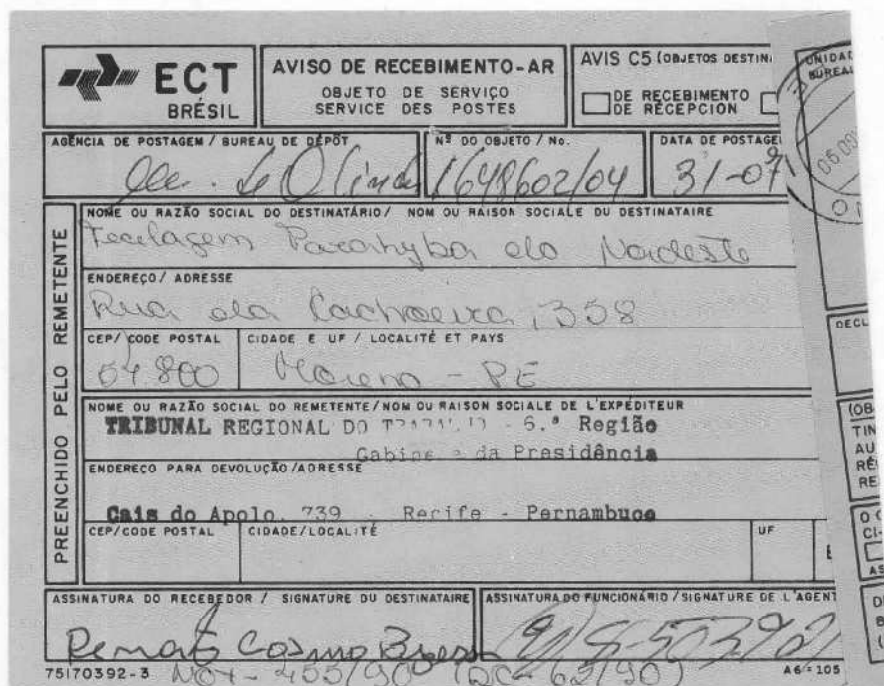 ECT
BRÉSIL
AVISO DE RECEBIMENTO-AR
OBJETO DE SERVIÇO
SERVICE DES POSTES
AVIS C5 (OBJETOS DESTIN
DE RECEBIMENTO
DE RÉCEPTION
UNIDAD
BUREAU
AGÊNCIA DE POSTAGEM / BUREAU DE DÉPÔT
Nº DO OBJETO / No.
DATA DE POSTAGE
de Olinda
1648602/04
31-07
PREENCHIDO PELO REMETENTE
NOME OU RAZÃO SOCIAL DO DESTINATÁRIO / NOM OU RAISON SOCIALE DU DESTINATAIRE
Tecelagem Parahyba do Nordeste
ENDEREÇO / ADRESSE
Rua da Cachoeira, 358
CEP / CODE POSTAL
CIDADE E UF / LOCALITÉ ET PAYS
54.800
Moreno - PE
NOME OU RAZÃO SOCIAL DO REMETENTE / NOM OU RAISON SOCIALE DE L'EXPÉDITEUR
TRIBUNAL REGIONAL DO TRABALHO - 6.ª Região
Gabinete da Presidência
ENDEREÇO PARA DEVOLUÇÃO / ADRESSE
Cais do Apolo, 739 - Recife - Pernambuco
CEP/CODE POSTAL
CIDADE/LOCALITÉ
UF
ASSINATURA DO RECEBEDOR / SIGNATURE DU DESTINATAIRE
ASSINATURA DO FUNCIONÁRIO / SIGNATURE DE L'AGENT
Renato Cosmo
75170392-3
NOT - 455/90 (DC-62/90)
A6=105
DECL
(OB
TIN
AU
RÉ
RE
CI-
AS